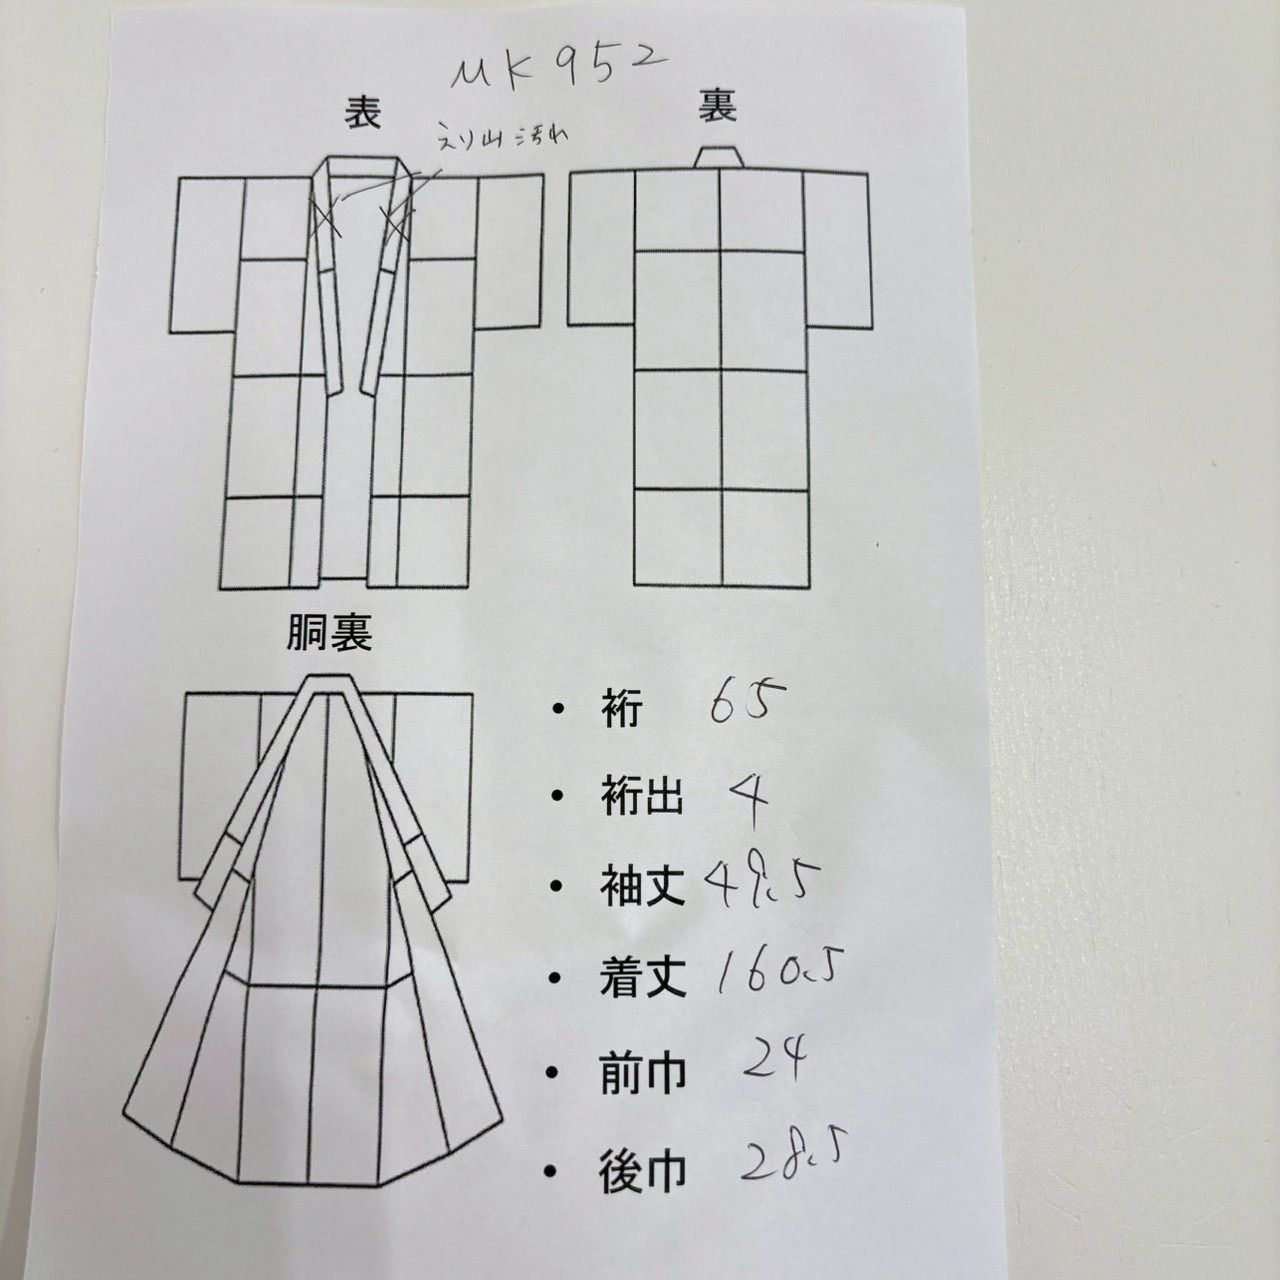 MK952
表
裏
えり山汚れ
胴裏
・裄 65
・裄出 4
・袖丈 49.5
・着丈 160.5
・前巾 24
・後巾 28.5